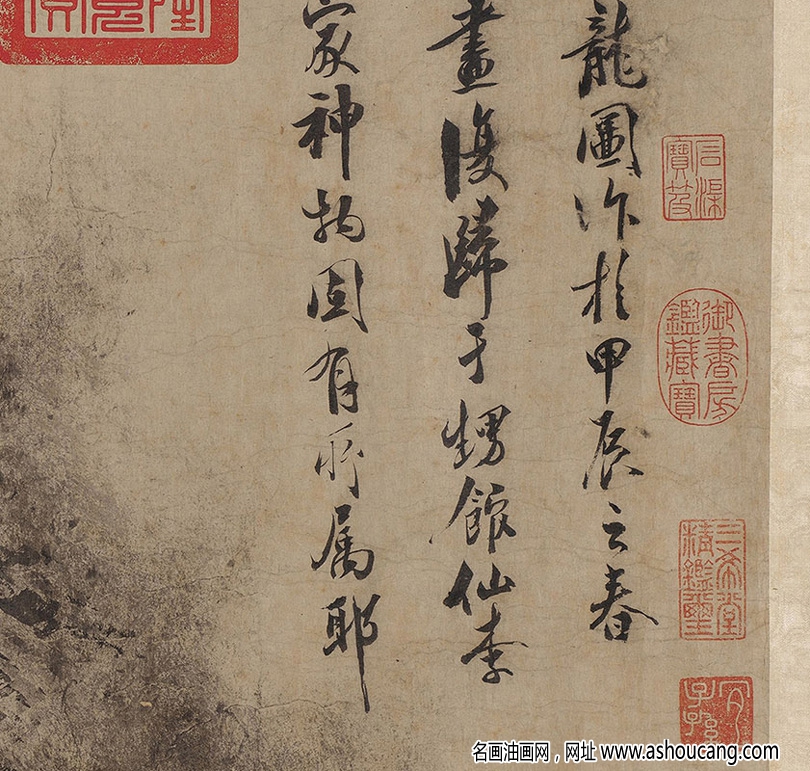 龍圖作於甲辰之春
畫復歸于甥館仙李
家神物固有所屬耶
石渠寶笈
御書房鑑藏寶
三希堂精鑑璽
宜子孫
名画油画网，网址 www.ashoucang.com